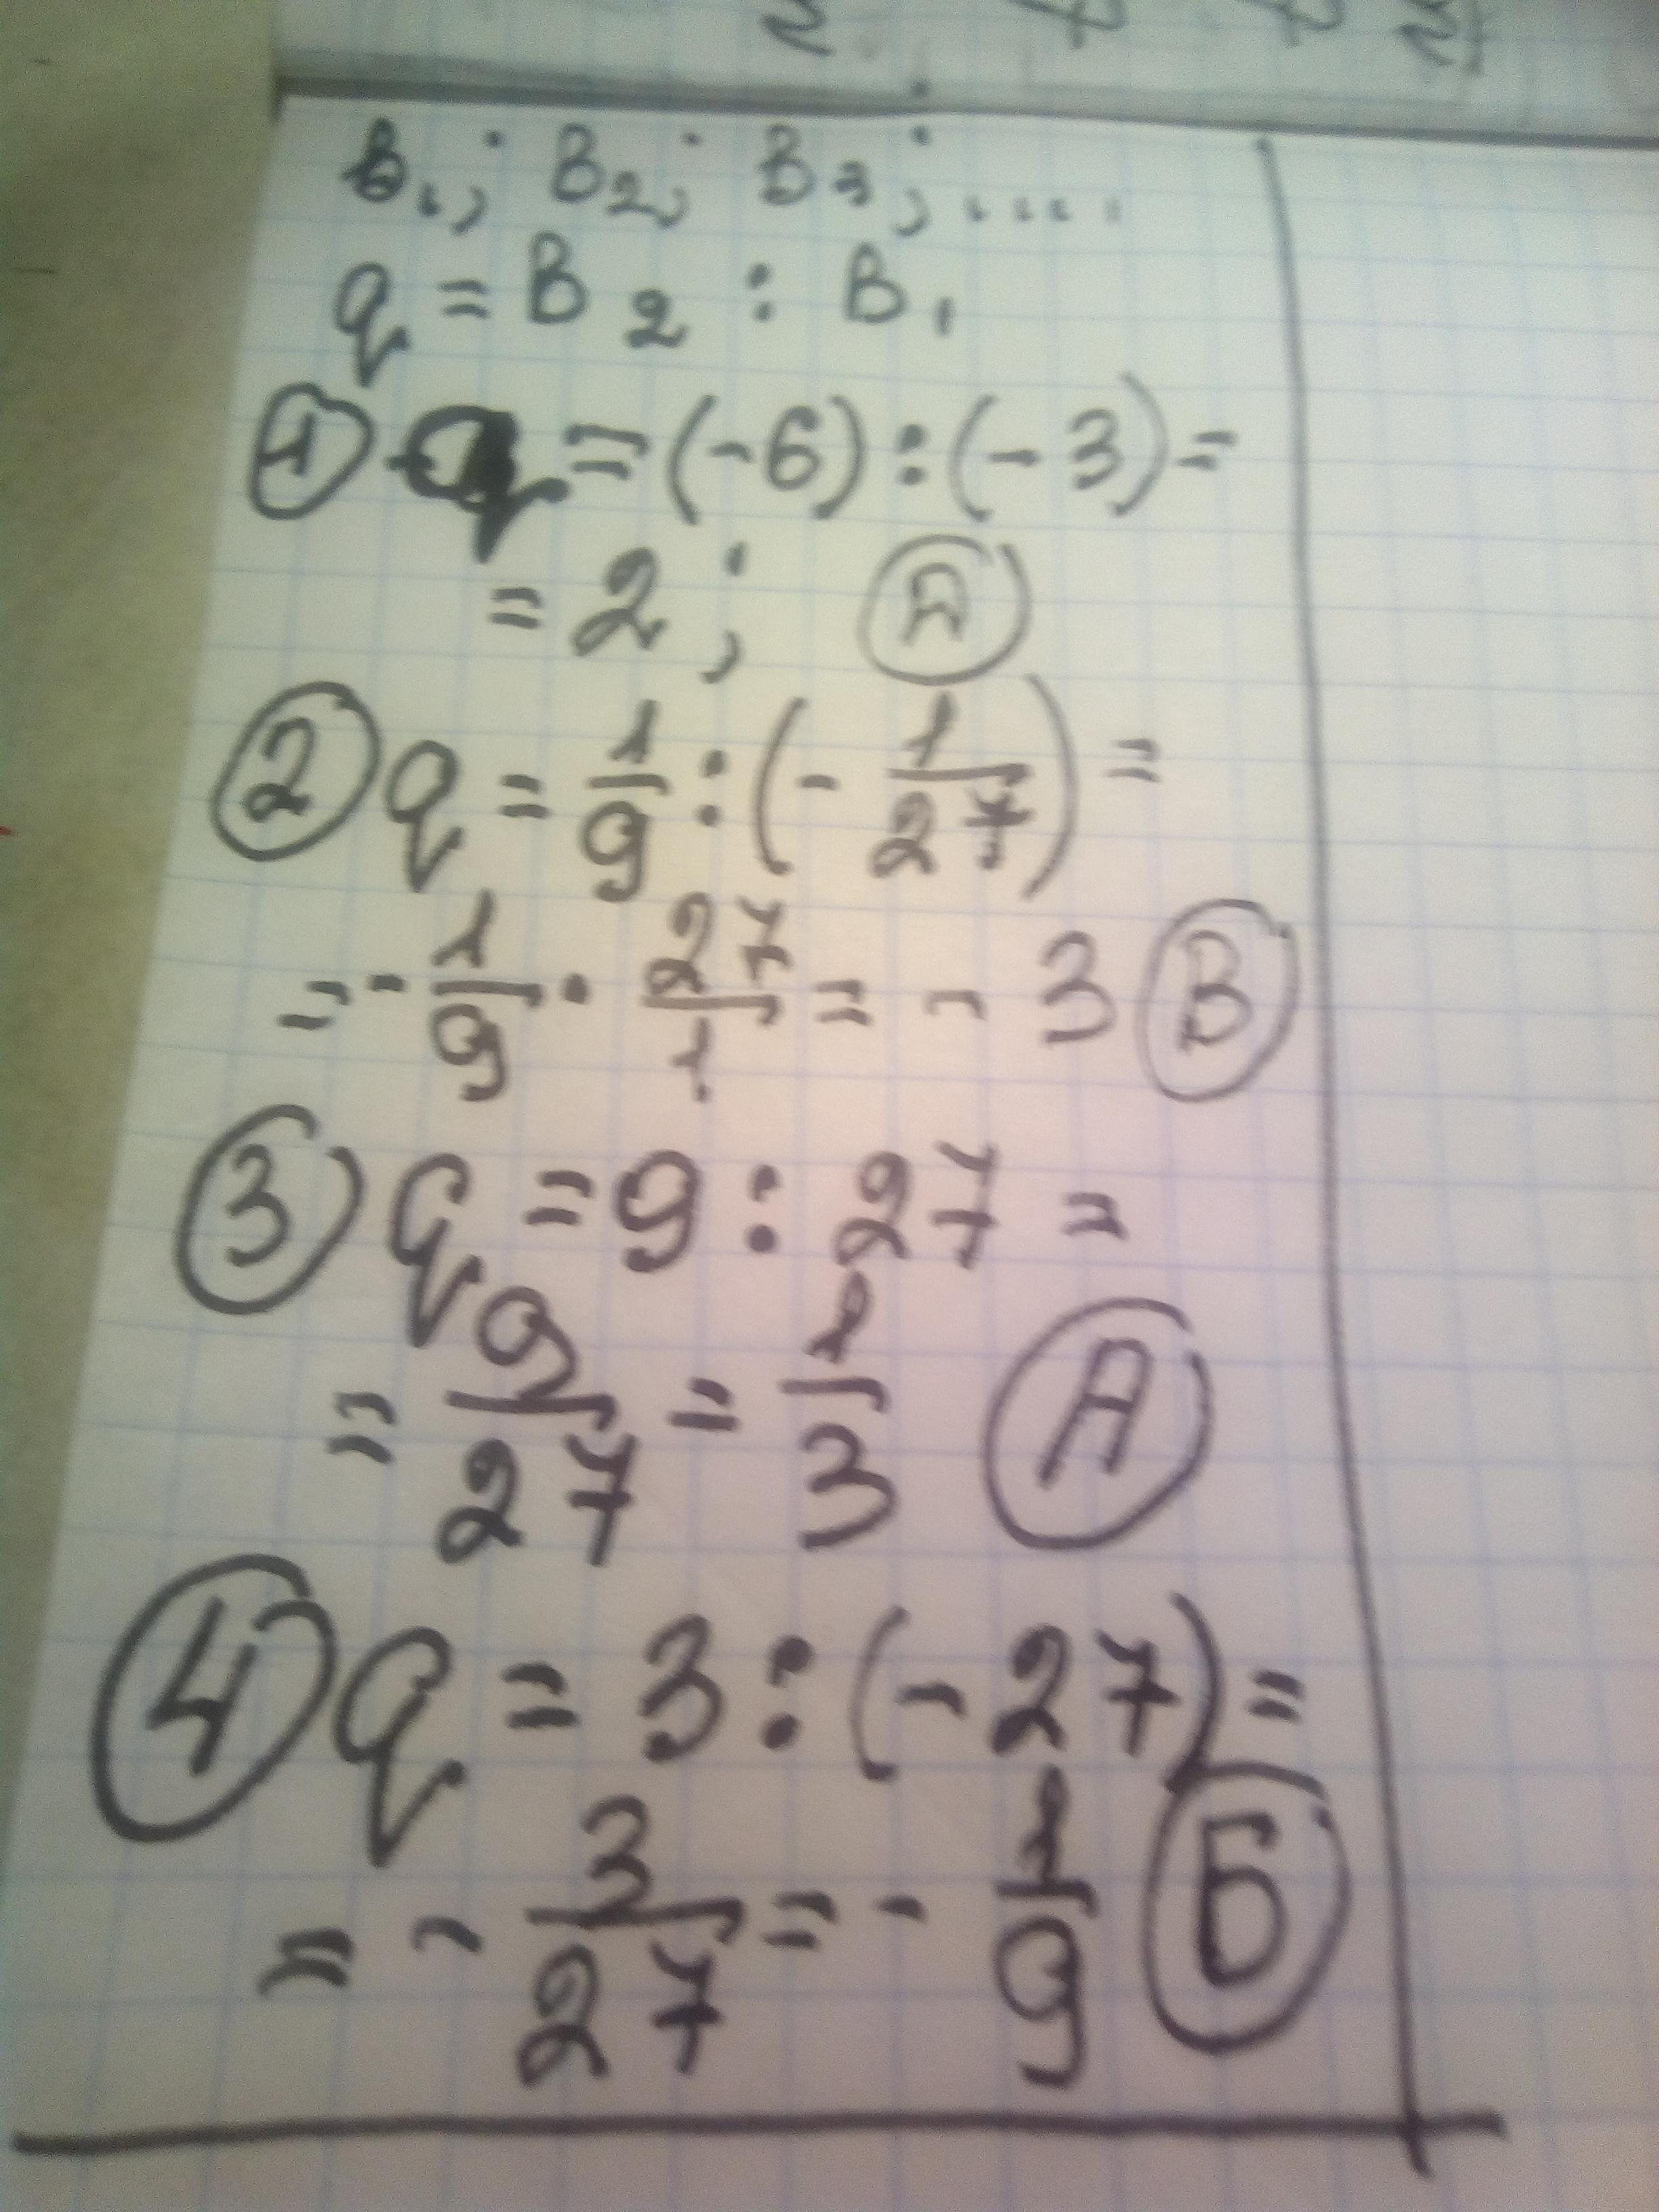 B₁; B₂; B₃; ....
q = B₂ : B₁
① q = (-6) : (-3) =
= 2;
② q = 1/9 : (- 1/27) =
= - 1/9 · 27/1 = - 3 Ⓑ
③ q = 9 : 27 =
= 9/27 = 1/3 Ⓐ
④ q = 3 : (-27) =
= - 3/27 = - 1/9 (Б)